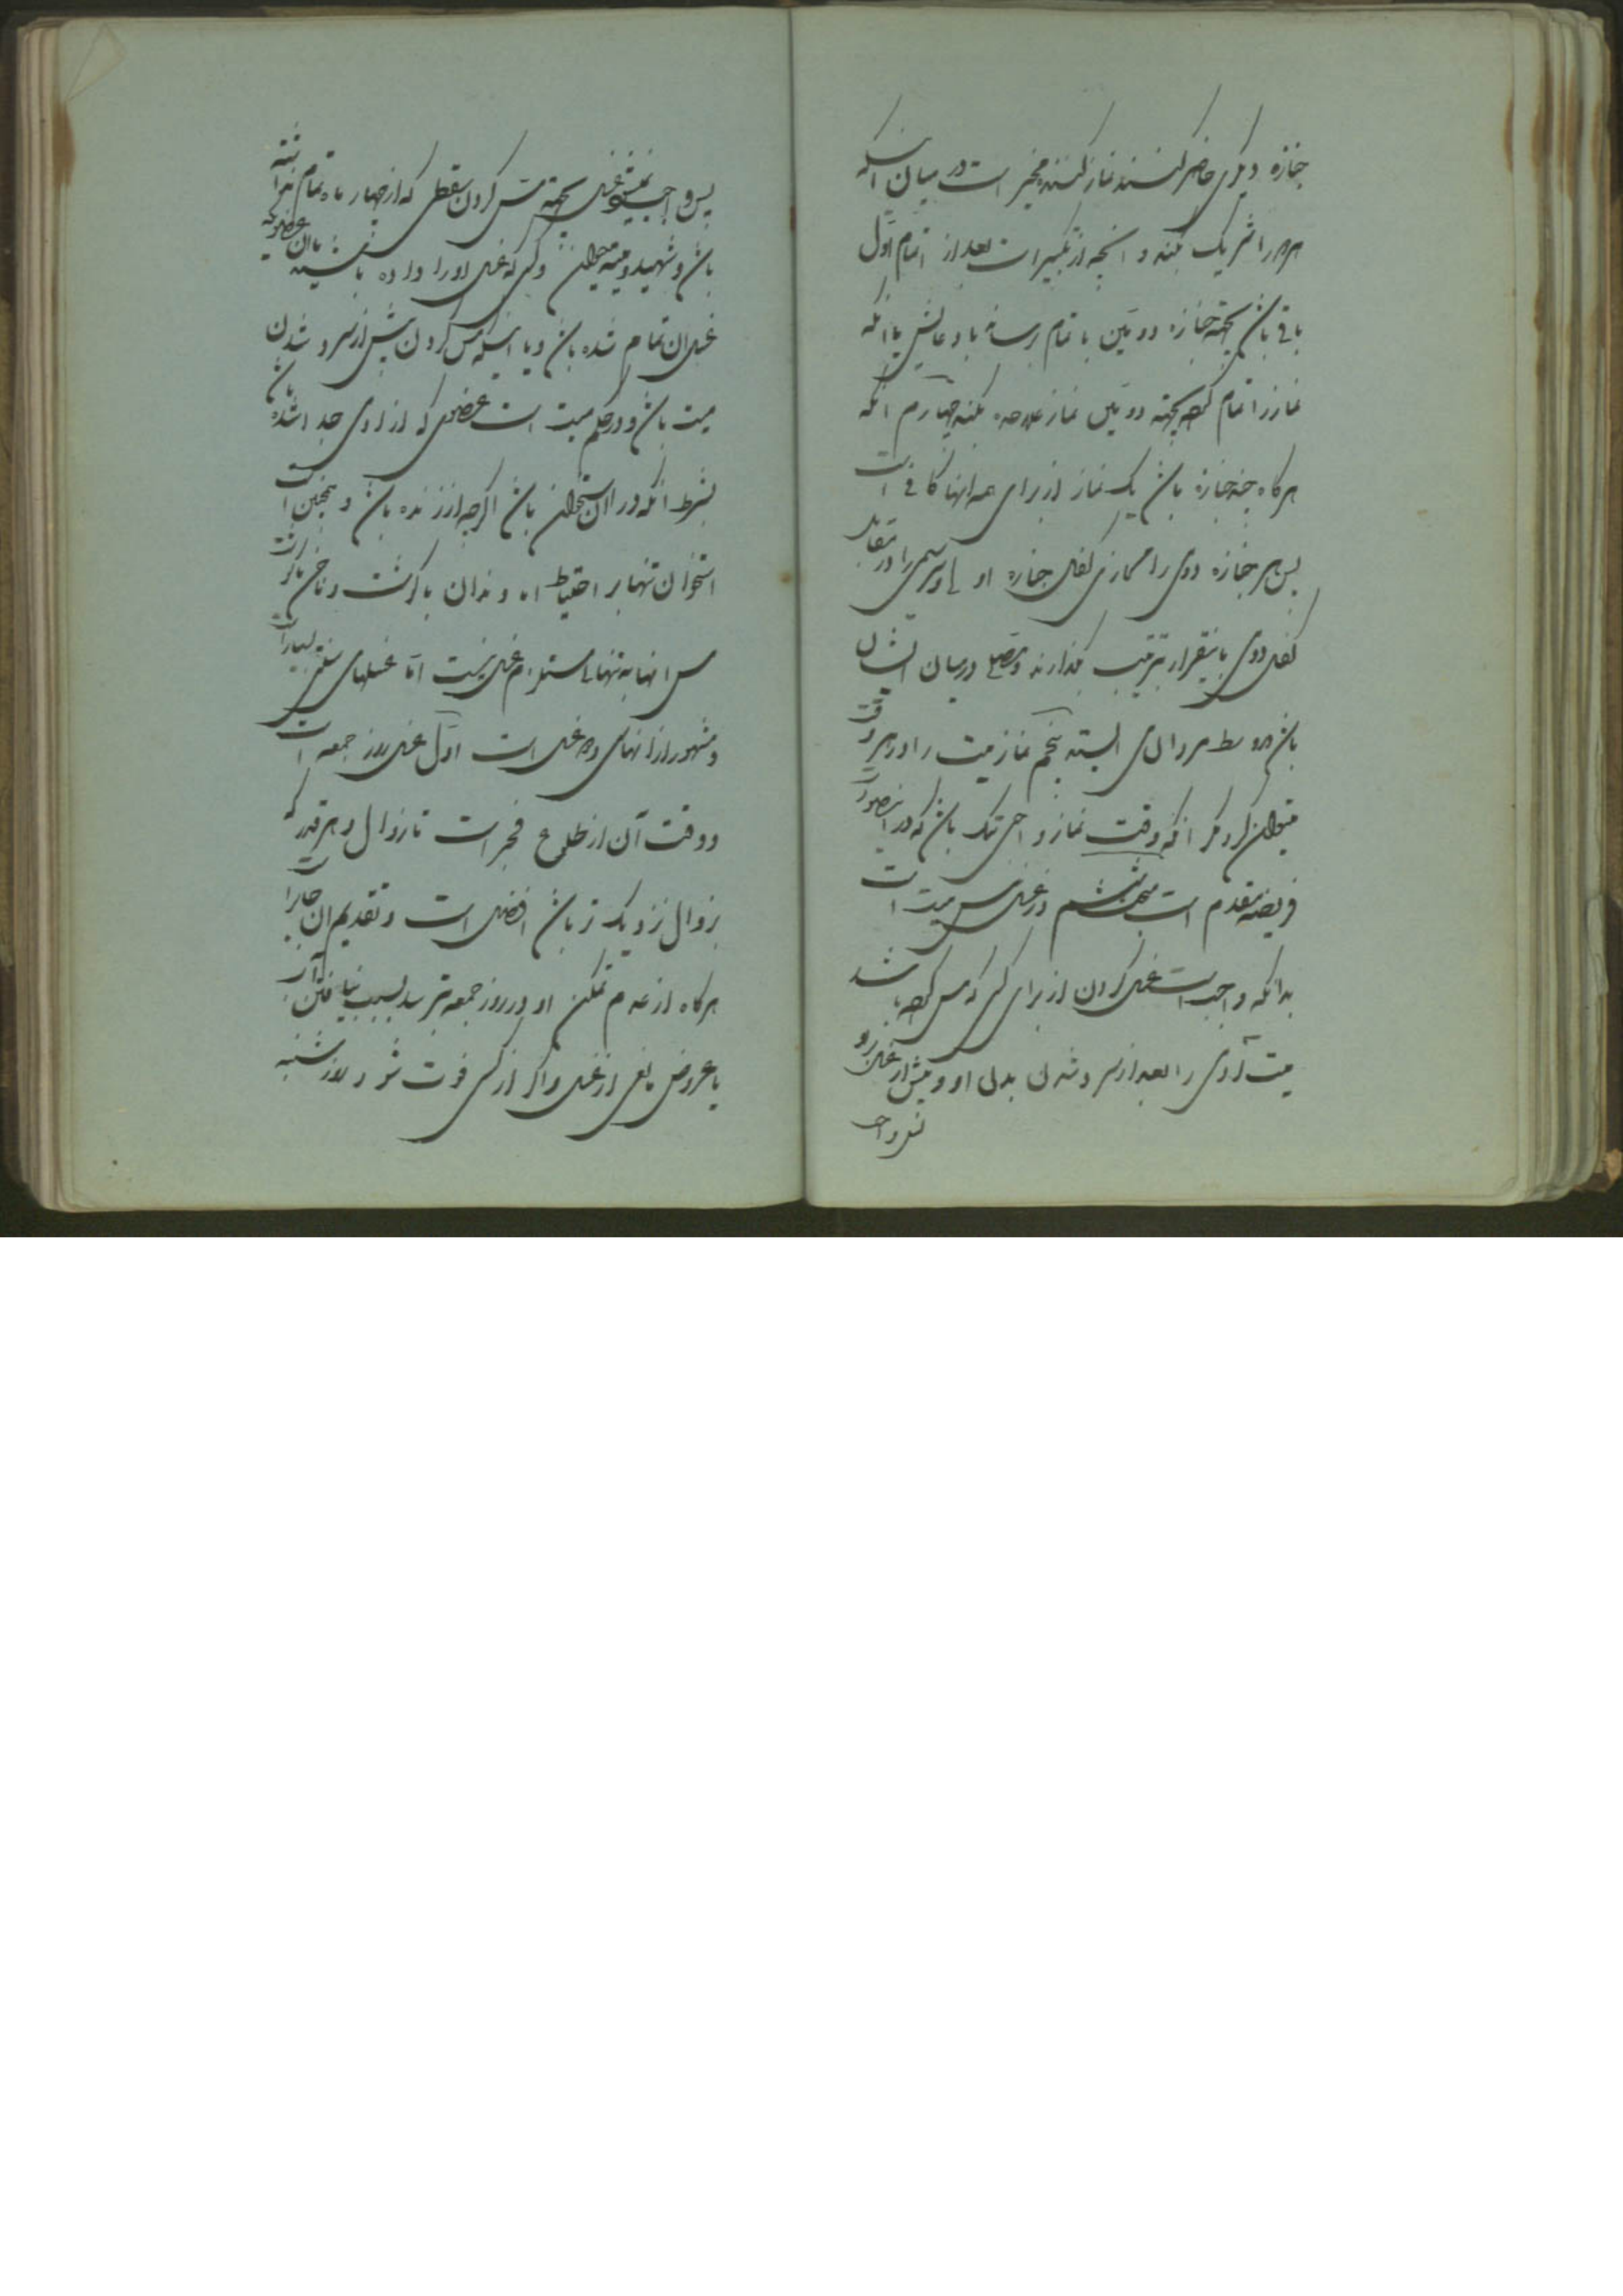 جنازه دیگری حاضر کنند نماز کننده مخیر است در میان اینکه
هر دو را شریک کند و آنچه از تکبیرات بعد از اتمام اول
باقی باشد بجهة جنازه دویمین باتمام رساند با دعایش یا آنکه
نماز را تمام کرده بجهة دویمین نماز علاحده بکند چهارم آنکه
هرگاه چند جنازه باشد یک نماز از برای همه آنها کافی است
پس سر جنازه دوی را محاذی کفل جنازه او لی و سر سیمی را در مقابل
کفل دوی باینقرار بترتیب بگذارند و مصلی در میان ایشان
باشد در وسط مردان بایستد پنجم نماز میت را در هر وقت
میتوان کرد مگر آنکه وقت نماز واجبی تنک باشد که در اینصورت
فریضه مقدم است مبحث ششم در غسل مس میت است
بدانکه واجب است غسل کردن از برای کسی که مس کرده باشد
میت آدمی را بعد از سرد شدن بدن او و پیش از غسل او
پس واجب
پس واجب نمیشود غسل بجهة مس کردن سقطی که از چهار ماه تمام نداشته
باشد و شهید و میته حیوان و کسی که غسل او را داده باشند یا آن عضوی که
غسل آن تمام شده باشد و یا اینکه مس کردن پیش از سرد شدن
میت باشد و در حکم میت است عضوی که از آدمی جدا شده باشد
بشرط آنکه در آن استخوان باشد اگرچه از زنده باشد و همچنین است
استخوان تنها بر احتیاط اما دندان با گوشت و ناخن با گوشت
مس آنها به تنهائی مستلزم غسل نیست اما غسلهای سنتی بسیار است
و مشهور از آنهای ده غسل است اول غسل روز جمعه است
و وقت آن از طلوع فجر است تا زوال و هر قدر که
بزوال نزدیک تر باشد افضل است و تقدیم آن جایز است
هرگاه از عدم تمکن او در روز جمعه بترسد بسبب نیافتن آب
یا عروض مانعی از غسل و اگر از کسی فوت شود روز شنبه